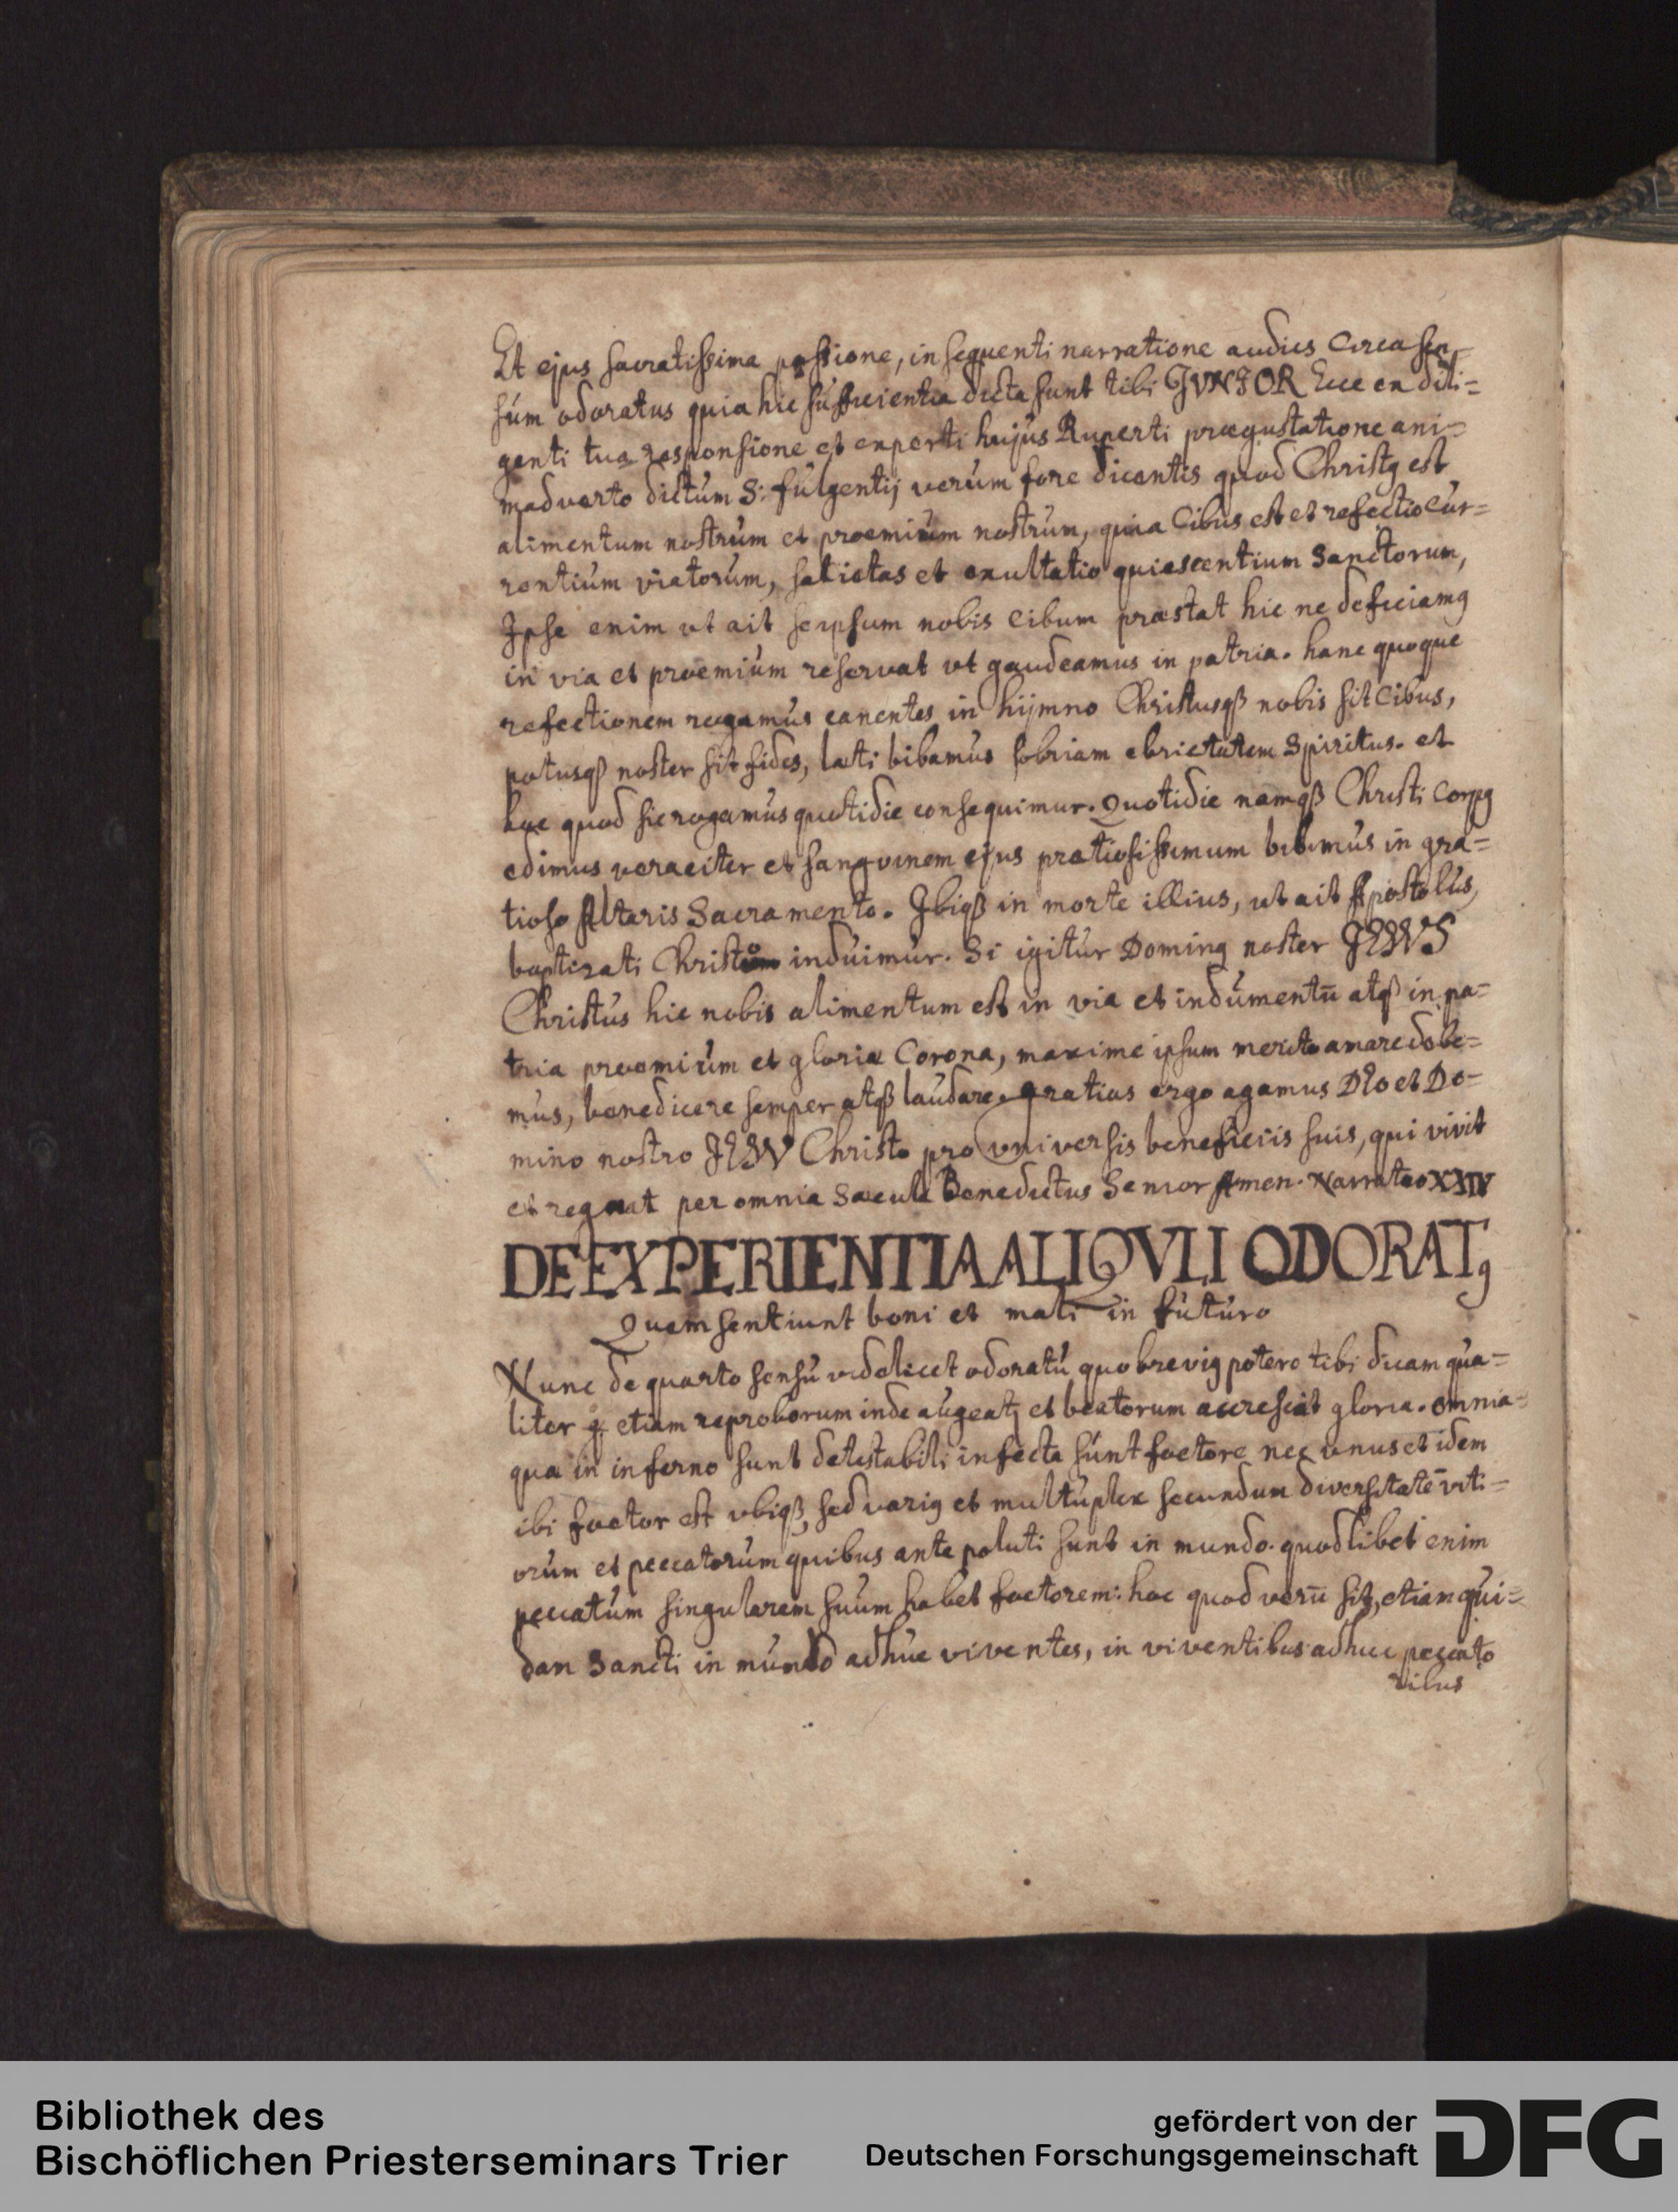 Et ejus sacratissima passione, in sequenti narratione audies circa sen-
sum odoratus quia hic sufficientia dicta sunt tibi JVNIOR Ecce ex dili=
genti tua responsione et experti hujus Ruperti praegustatione ani=
madverto dictum S: fulgentij verum fore dicentis quod Christꝯ est
alimentum nostrum et proemium nostrum, quia Cibus est et refectio cur=
rentium viatorum, satietas et exultatio quiescentium Sanctorum,
Ipse enim ut ait seipsum nobis cibum praestat hic ne deficiamꝯ
in via et proemium reservat vt gaudeamus in patria. hanc quoque
refectionem rogamus canentes in hijmno Christusqꝫ nobis sit cibus,
potusqꝫ noster sit fides, laeti bibamus sobriam ebrietatem Spiritus. et
hoc quod sic rogamus quotidie consequimur. Quotidie namqꝫ Christi corpꝯ
edimus veraciter et sangvinem ejus pretiosissimum bibimus in gra=
tioso Altaris Sacramento. Ibiqꝫ in morte illius, ut ait Apostolus,
baptizati Christo induimur. Si igitur Dominꝯ noster JESVS
Christus hic nobis alimentum est in via et indumentū atqꝫ in pa=
tria proemium et gloriae Corona, maxime ipsum merito amare debe=
mus, benedicere semper atqꝫ laudare. gratias ergo agamus Deo et Do=
mino nostro JESV Christo pro vniversis beneficiis suis, qui vivit
et regnat per omnia Saecula Benedictus Senior Amen. Narratio XXIV
DE EXPERIENTIA ALIQVLI ODORATꝯ
Quem sentiunt boni et mali in futuro
Nunc de quarto sensu videlicet odoratu quo breviꝯ potero tibi dicam qua=
liter etiam reproborum inde augeatꝫ et beatorum accrescat gloria. omnia=
quae in inferno sunt detestabili infecta sunt foetore nec vnus et idem
ibi foetor est vbiqꝫ, sed variꝯ et multuplex secundum diversitatē viti=
orum et peccatorum quibus ante poluti sunt in mundo. quodlibet enim
peccatum singularem suum habet foetorem: hoc quod verū sit, etiam qui=
dan Sancti in mundo adhuc viventes, in viventibus adhuc peccato
ribus
Bibliothek des
Bischöflichen Priesterseminars Trier
gefördert von der
Deutschen Forschungsgemeinschaft
DFG